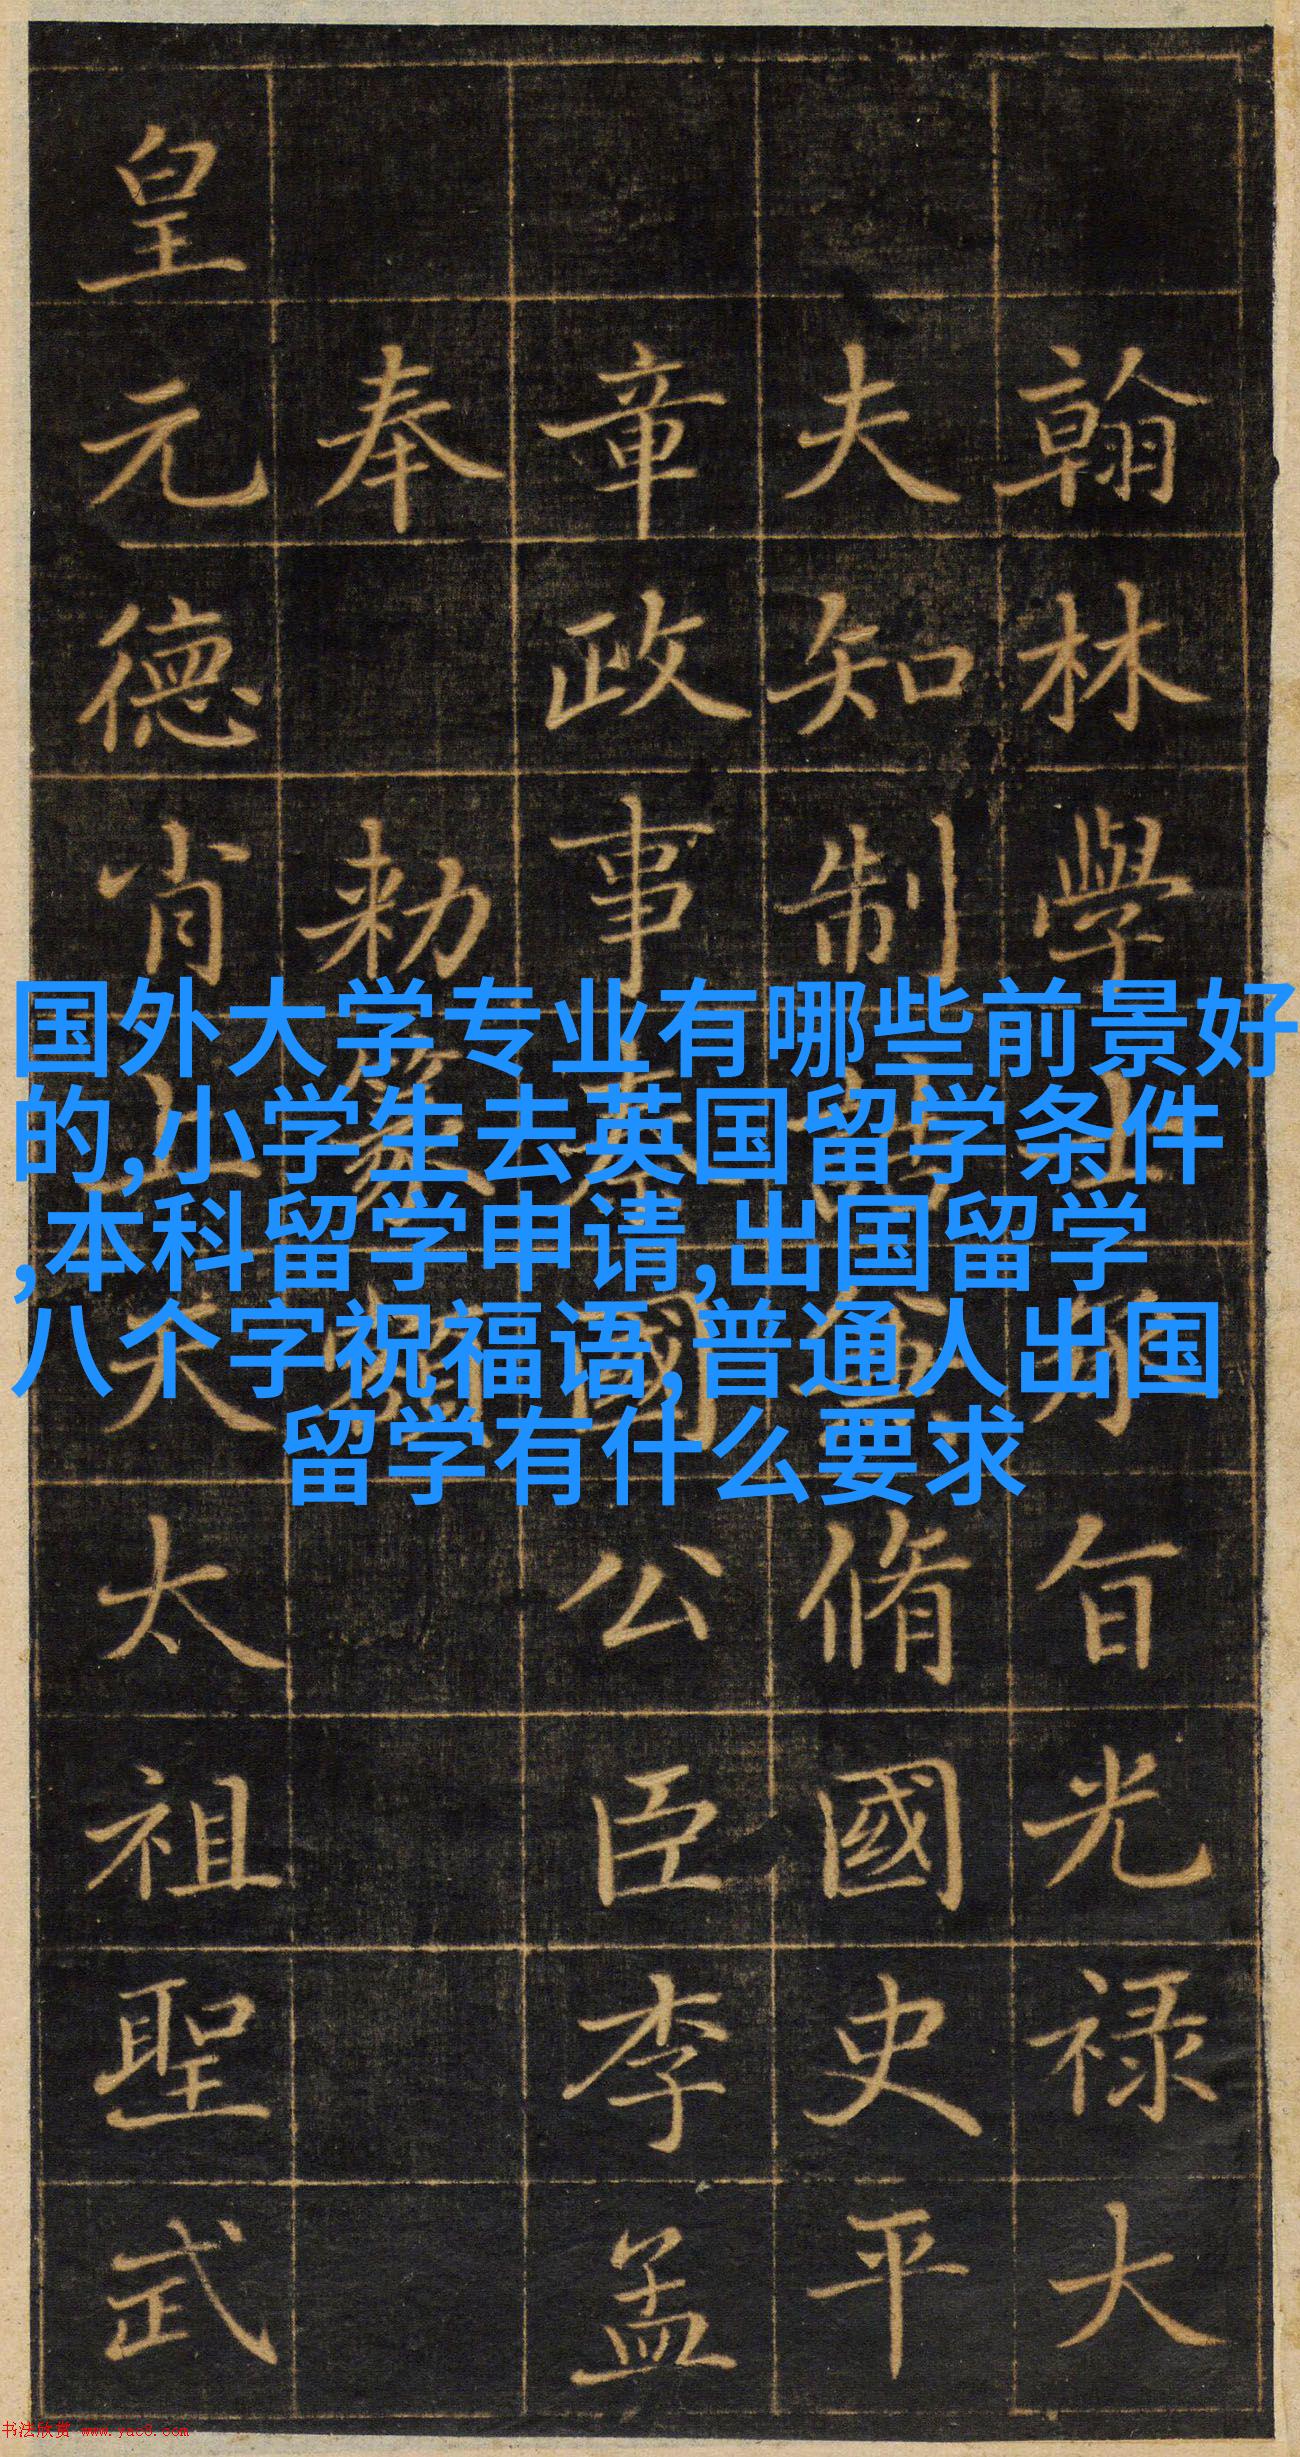 翰林學士承旨光禄大
夫知制誥兼脩國史平
章政事秦國公臣李孟
奉勅篆額
皇元德肖上天太祖聖武
国外大学专业有哪些前景好
的,小学生去英国留学条件
,本科留学申请,出国留学
八个字祝福语,普通人出国
留学有什么要求
书法欣赏 www.yac8.com